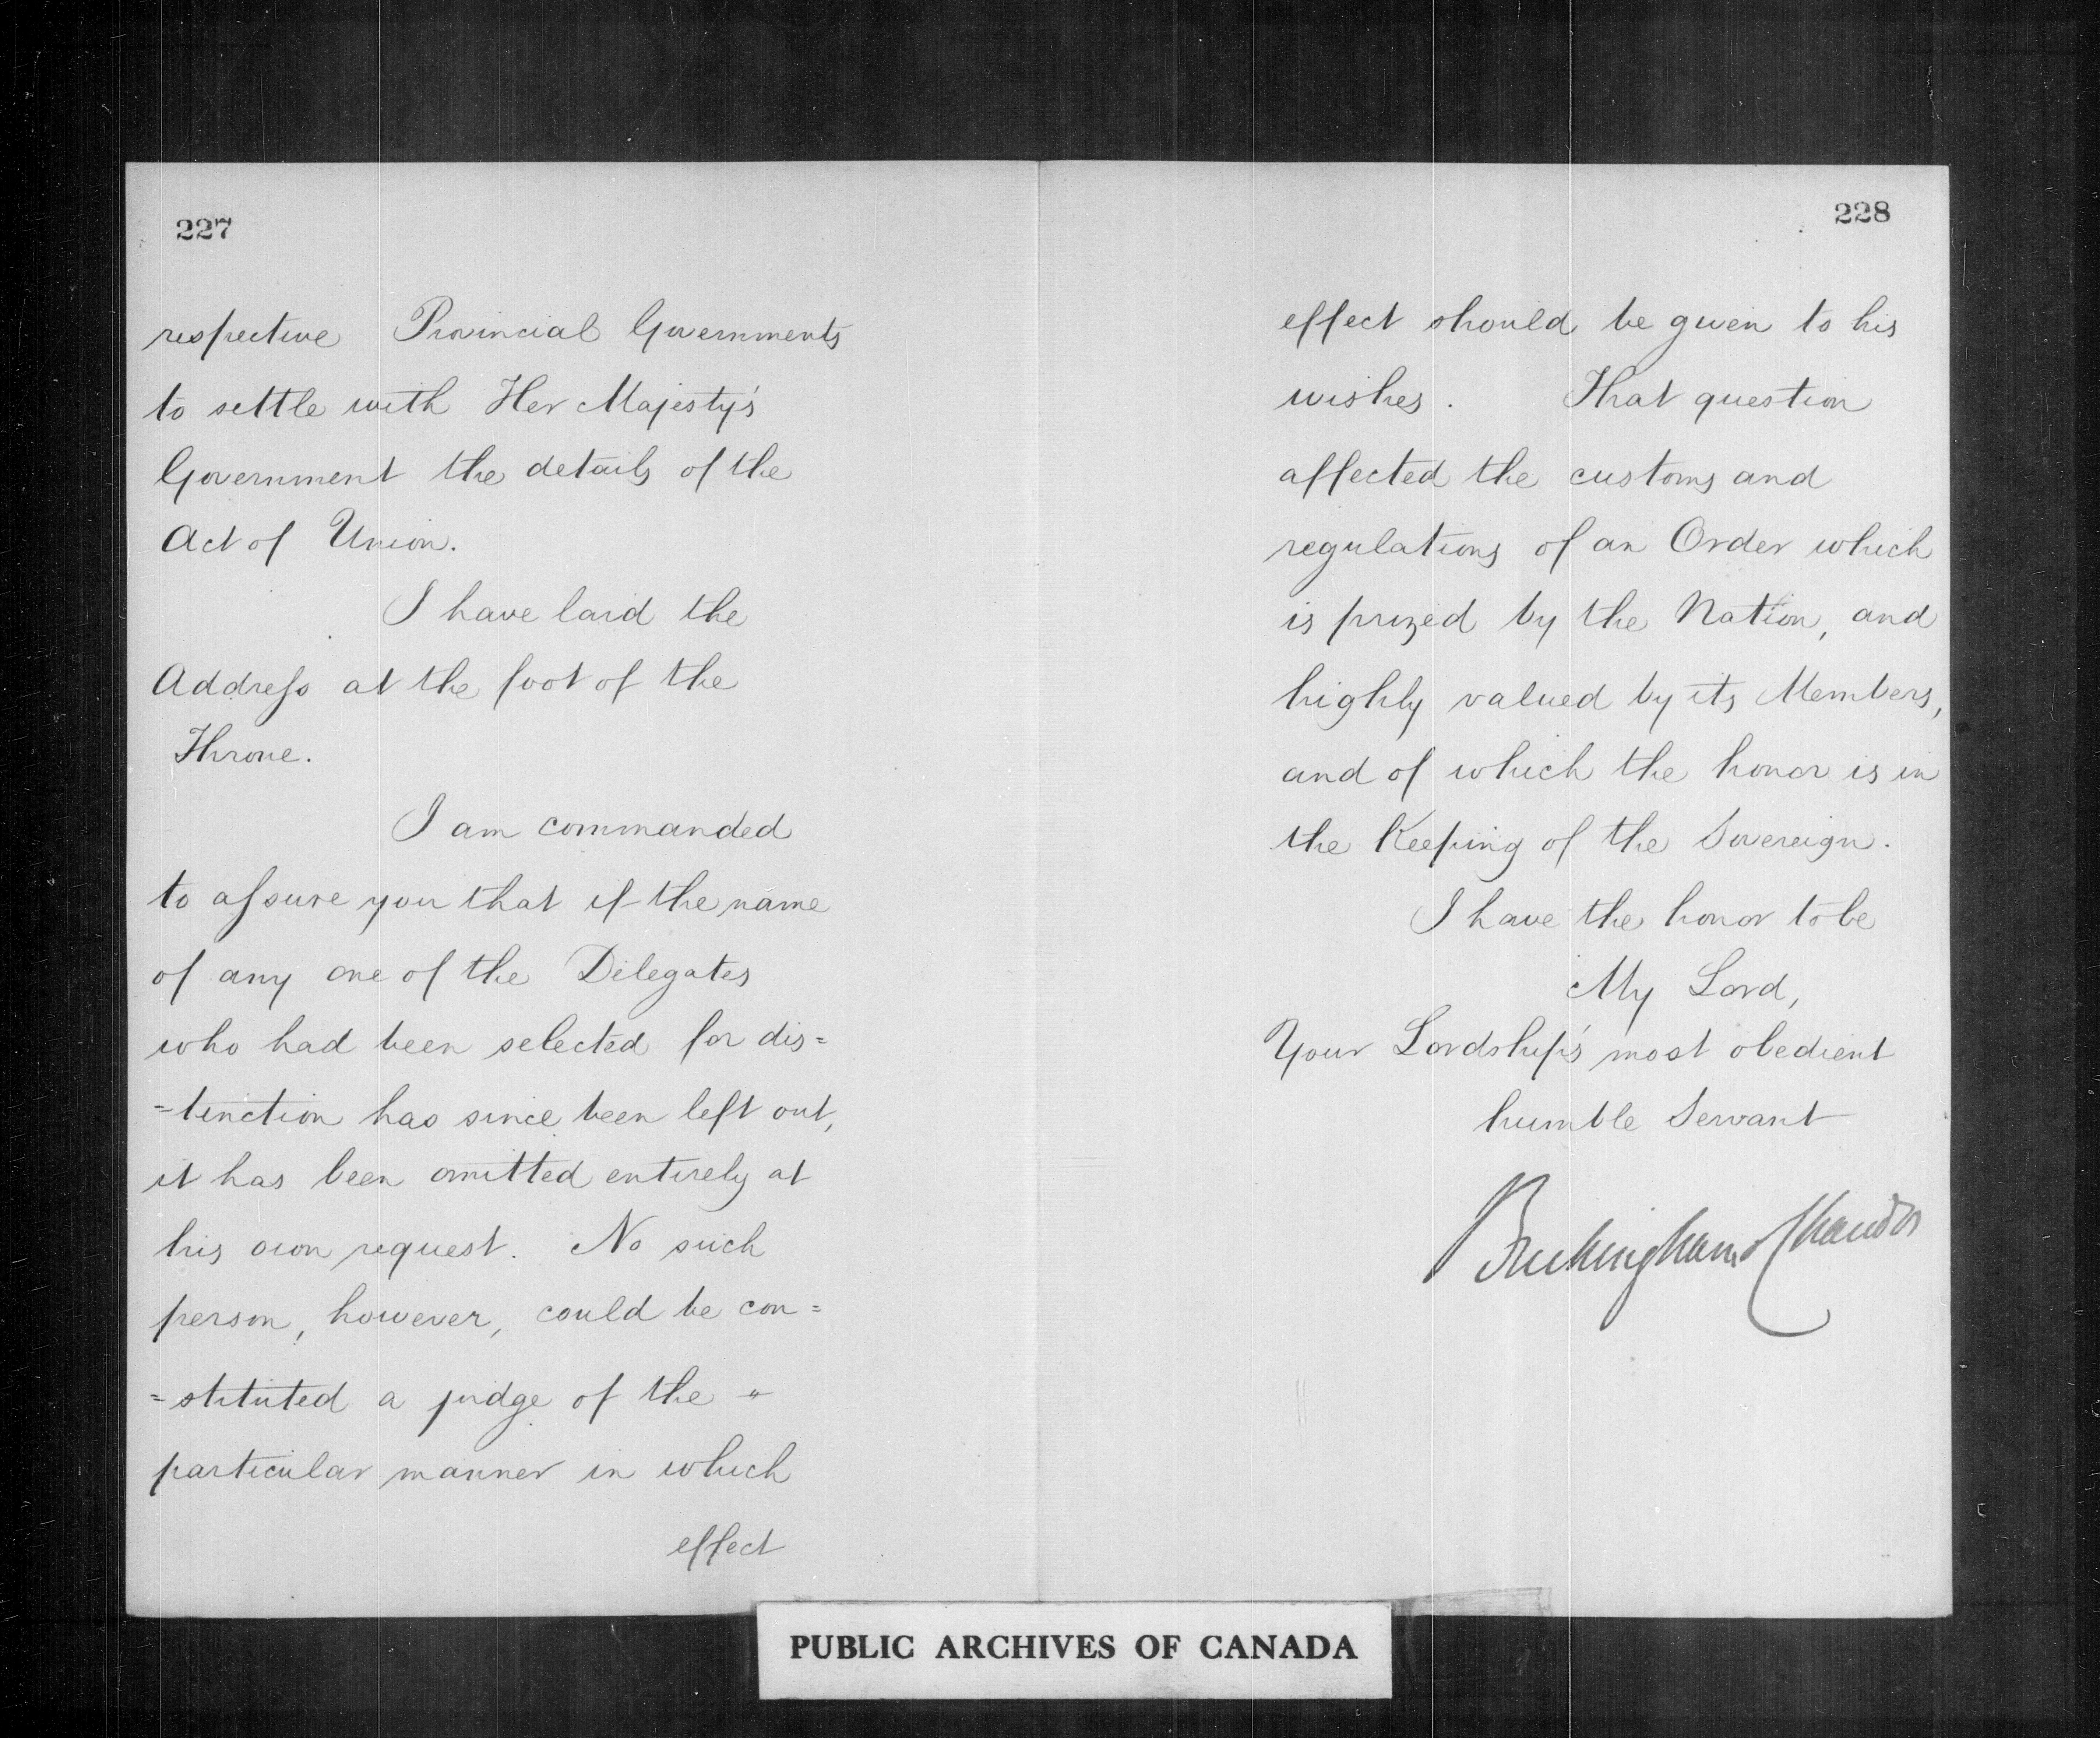 227
respective Provincial Governments
to settle with Her Majesty's
Government the details of the
Act of Union.
I have laid the
Address at the foot of the
Throne.
I am commanded
to assure you that if the name
of any one of the Delegates
who had been selected for dis=
=tinction has since been left out,
it has been omitted entirely at
his own request. No such
person, however, could be con=
=stituted a judge of the "
particular manner in which
effect
228
effect should be given to his
wishes. That question
affected the customs and
regulations of an Order which
is prized by the Nation, and
highly valued by its Members,
and of which the honor is in
the Keeping of the Sovereign.
I have the honor to be
My Lord,
Your Lordship's most obedient
humble Servant
Buckingham & Chandos
PUBLIC ARCHIVES OF CANADA